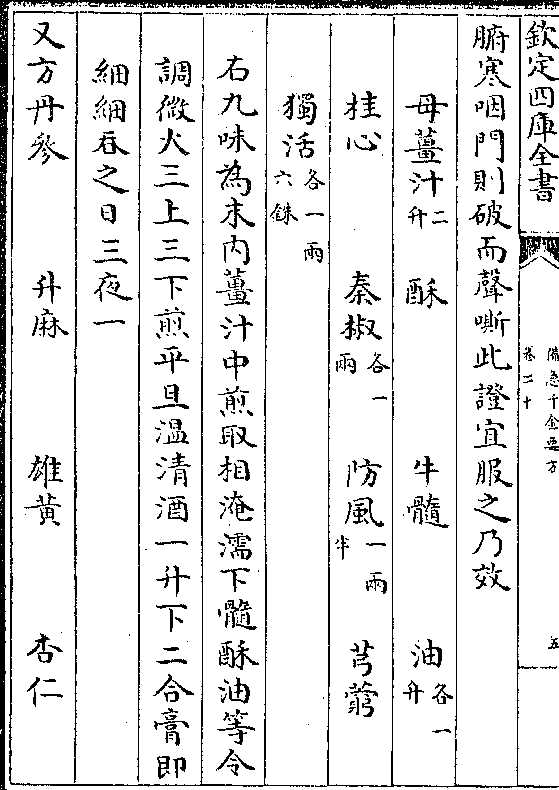 欽定四庫全書
備急千金要方
卷二十
五
腑寒咽門則破而聲嘶此證宜服之乃效
母薑汁二升 酥 牛髓 油各一升
桂心 秦椒各一兩 防風一兩半 芎藭
獨活各一兩六銖
右九味為末内薑汁中煎取相淹濡下髓酥油等令
調微火三上三下煎平旦温清酒一升下二合膏即
細細吞之日三夜一
又方丹參 升麻 雄黄 杏仁